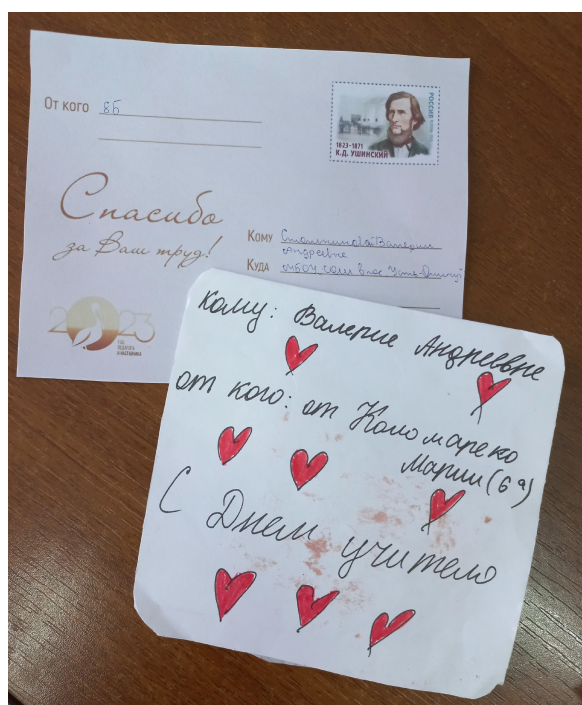 От кого 8Б
РОССИЯ
1823-1871
К.Д. УШИНСКИЙ
Спасибо
за Ваш труд!
Кому Столытиновой Валерии
Андреевне
Куда МБОУ СОШ в пос. Усть-Омчуг
2023
ГОД
ПЕДАГОГА
И НАСТАВНИКА
кому: Валерие Андреевне
от кого: от Коломареко
Марии (6а)
С Днем учителю